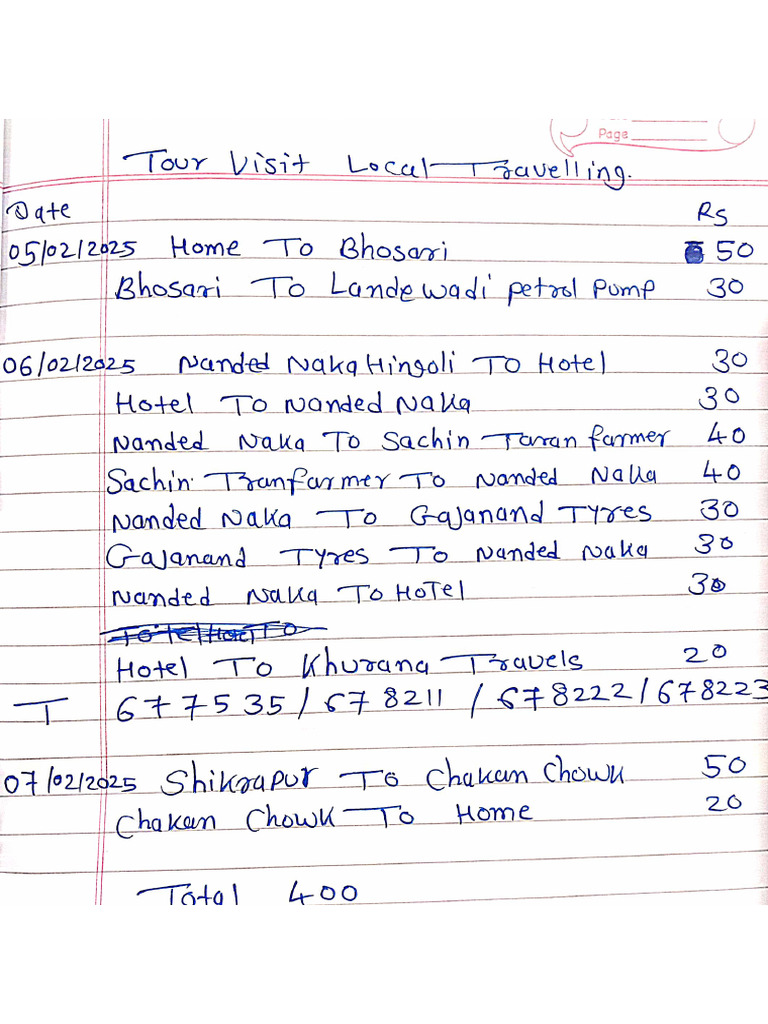 Page
Tour Visit Local Travelling.
Date Rs
05/02/2025 Home To Bhosari 50
Bhosari To Landewadi petrol pump 30
06/02/2025 Nanded Naka Hingoli To Hotel 30
Hotel To Nanded Naka 30
Nanded Naka To Sachin Taran farmer 40
Sachin Tranfarmer To Nanded Naka 40
Nanded Naka To Gajanand Tyres 30
Gajanand Tyres To Nanded Naka 30
Nanded Naka To HoTel 30
Hotel To Khurana Travels 20
T 677535/678211/678222/678223
07/02/2025 Shikrapur To Chakan Chowk 50
Chakan Chowk To Home 20
Total 400